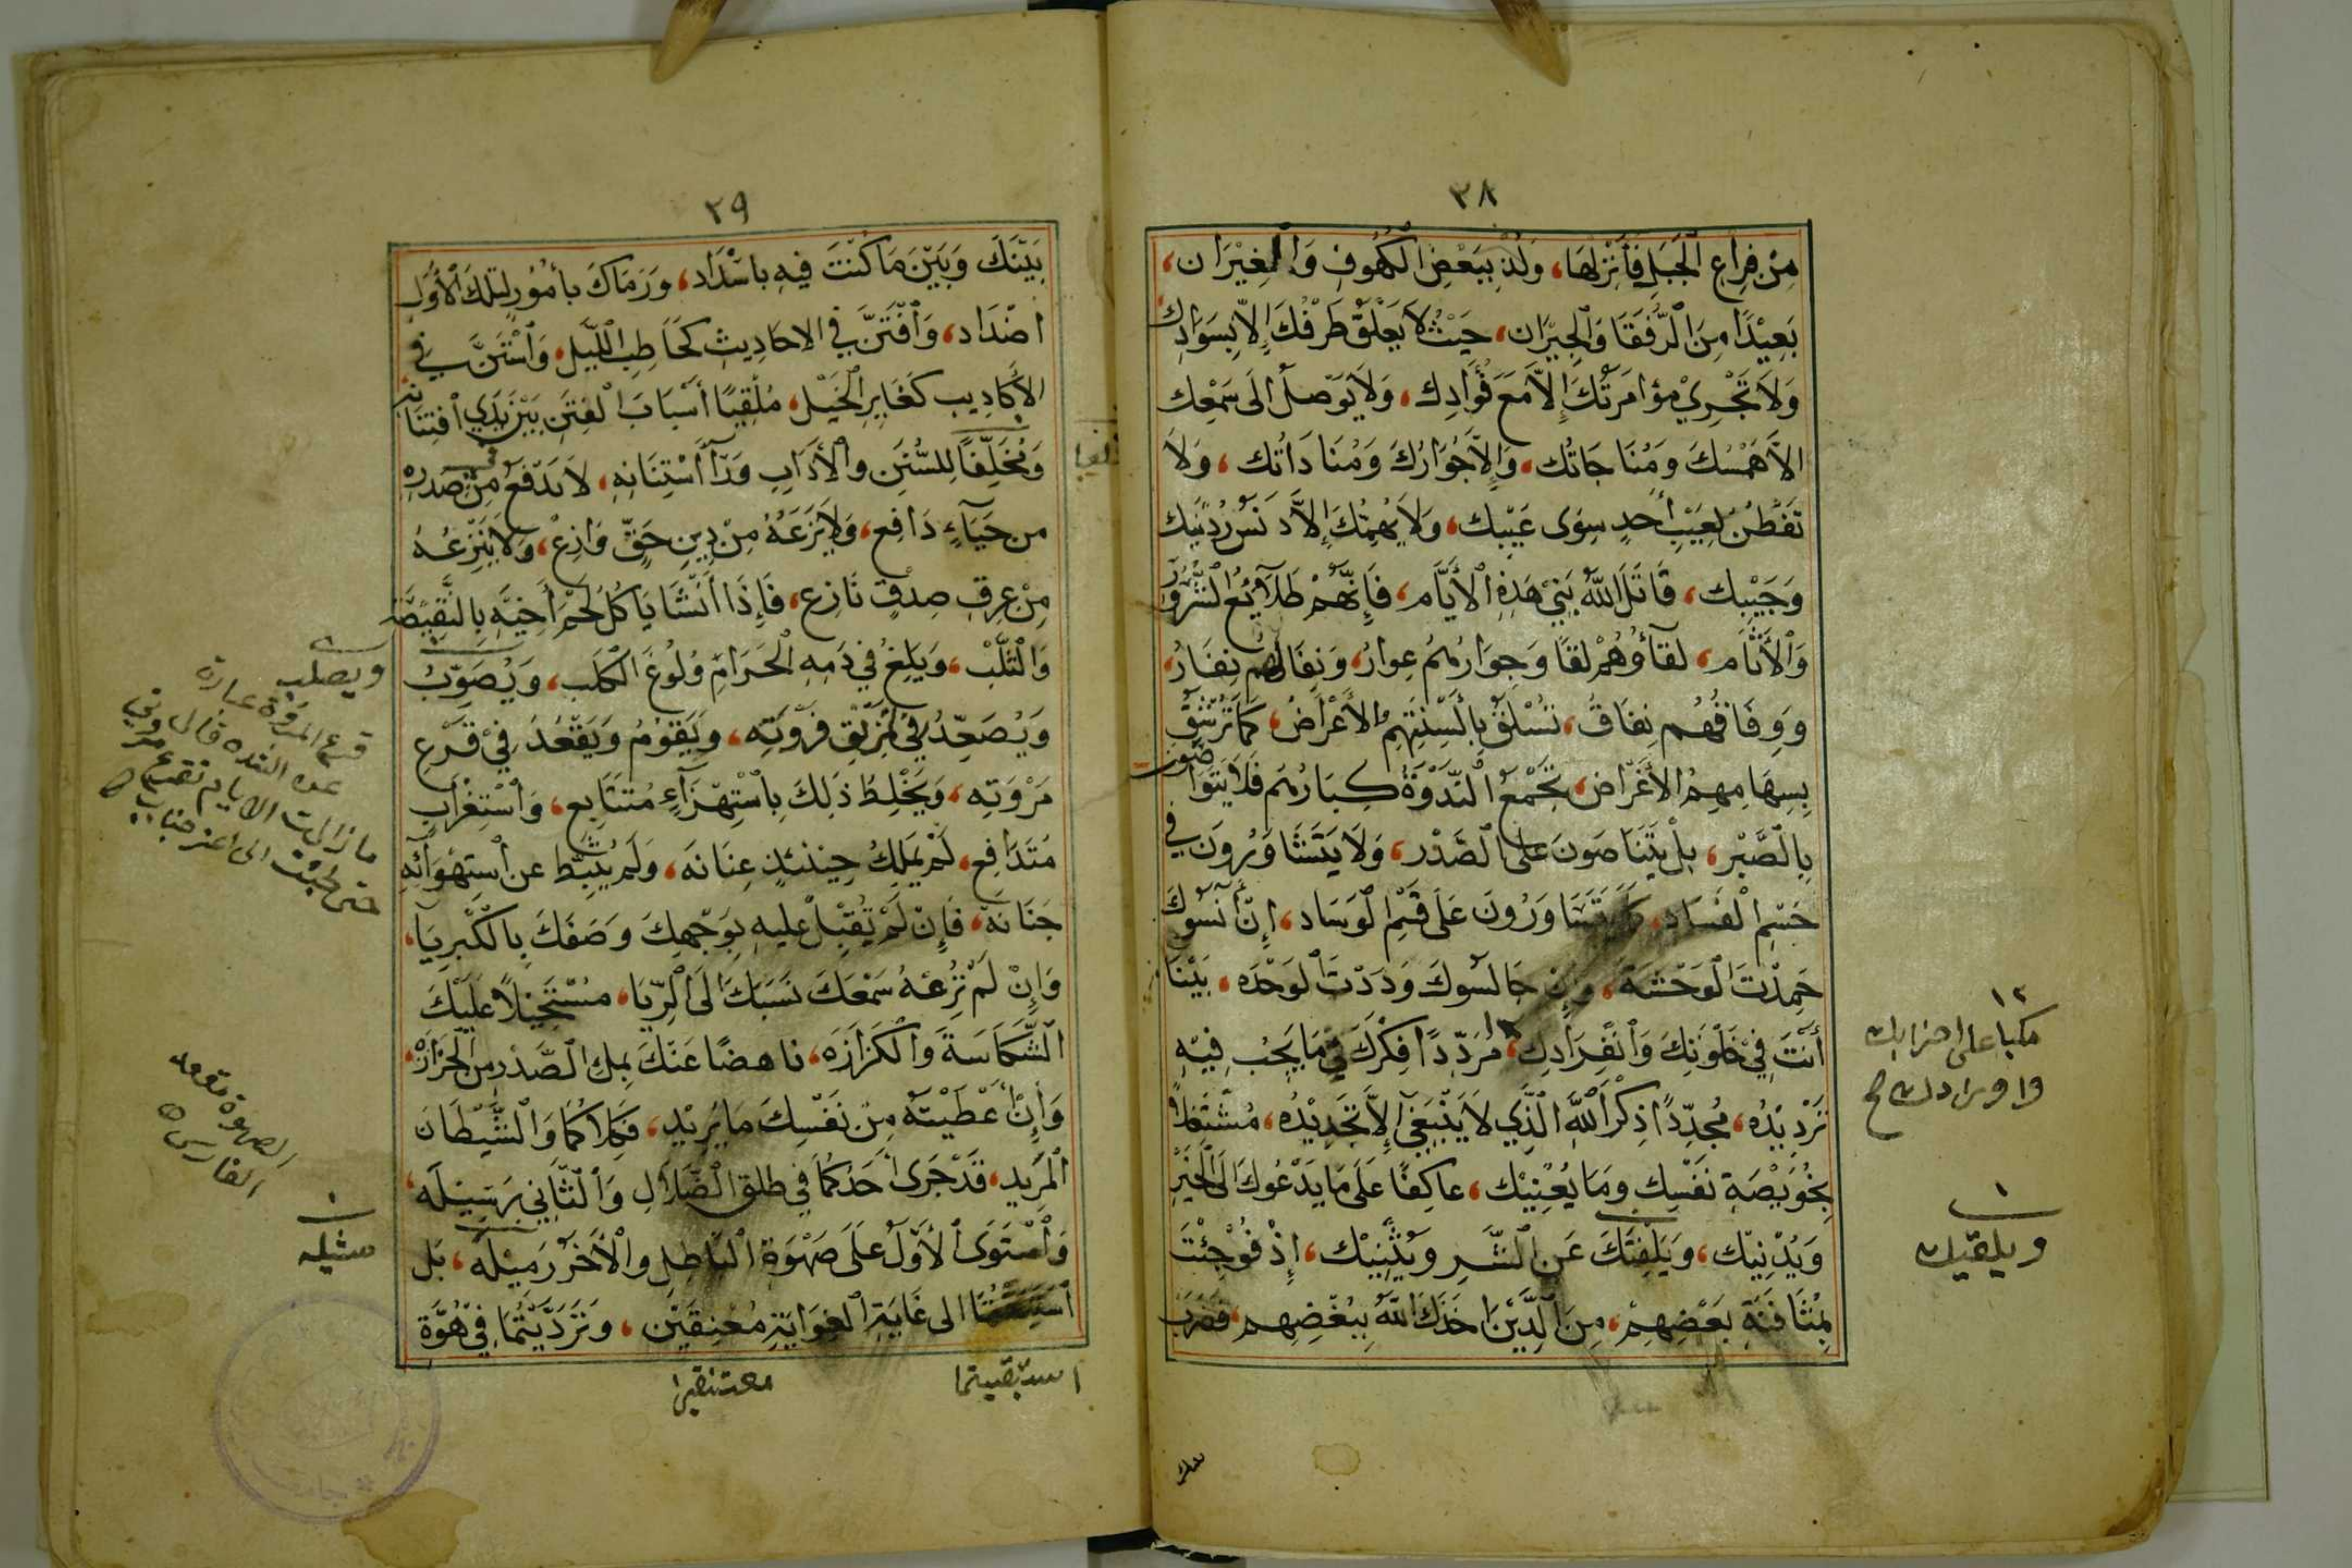 ٢٨
من فراع الجبل فانزلها، ولذ ببعض الكهوف والغيران،
بعيدًا من الرفقا والجيران، حيث لا يعلق طرفك إلا بسوادك
ولا تجري مؤامرتك إلا مع فؤادك، ولا يوصل الى سمعك
الا همسك ومناجاتك، وإلا جؤارك ومناداتك، ولا
تفطن لعيب أحد سوى عيبك، ولا يهمك إلا دنس ردنيك
وجيبك، قاتل الله بني هذه الأيام، فإنهم طلائع الشرور
والأثام، لقاؤهم لقا وجوارهم عوار، ونقالهم نقار،
ووفاقهم نفاق، تسلق بألسنتهم الأعراض، كما ترشق
بسهامهم الأغراض، تجمع الندوة كبارهم فلا يتواصون
بالصبر، بل يتناصون على الصدر، ولا يتشاورون في
حسم الفساد، يتساورون على قسم الوساد، إن آنسوك
حمدت الوحشة، وإن جالسوك وددت الوحده، بينا
أنت في خلوتك وانفرادك، مرددا فكرك في ما يجب فيه
ترديده، مجددا ذكر الله الذي لا ينبغي إلا تجديده، مشتغلا
بخويصة نفسك وما يعنيك، عاكفا على ما يدعوك الى الخير
ويدنيك، ويلفتك عن الشر ويثنيك، إذ فوجئت
بمثافنة بعضهم، من الذين اخذك الله ببغضهم، فضرب
١٢
مكبا على احزابك
واورادك ح
١
ويلفيك
٢٩
بينك وبين ما كنت فيه باسداد، ورماك بأمور لتلك الأول
اضداد، وافتن في الاحاديث كحاطب الليل، واستن في
الأكاذيب كغاير الخيل، ملقيا أسباب الفتن بين يدي افتنانه
ومخلفا للسنن والأداب ورآ استنانه، لا يدفع من صدره
من حياء دافع، ولا يزعه من دين حق وازع، ولا ينزعه
من عرق صدق نازع، فإذا أنشا ياكل لحم أخيه بالنقيصة
والثلب، ويلغ في دمه الحرام ولوغ الكلب، ويصوب
ويصعد في تمزيق فروته، ويقوم ويقعد في قرع
مروته، ويخلط ذلك باستهزاء متتابع، واستغراب
متدافع، لم يملك حينئذ عنانه، ولم يثبط عن استهوائه
جنانه، فإن لم تقبل عليه بوجهك وصفك بالكبريا،
وإن لم ترعه سمعك نسبك الى الريا، مستجيلا عليك
الشكاسة والكزازه، ناهضا عنك بملء الصدر من الحزازة،
وإن أعطيته من نفسك ما يريد، فكلاكما والشيطان
المريد، قد جرى أحدكما في طلق الضلال والثاني رسيله،
واستوى الأول على صهوة الباطل والأخر زميله، بل
الى غاية الغواية معنقين، وترديتما في هوة
ويصلب
قرع المروة عبارة
ما زالت الايام
الصهوة مقعد
الفارس
١
مثيله
استبقيتما